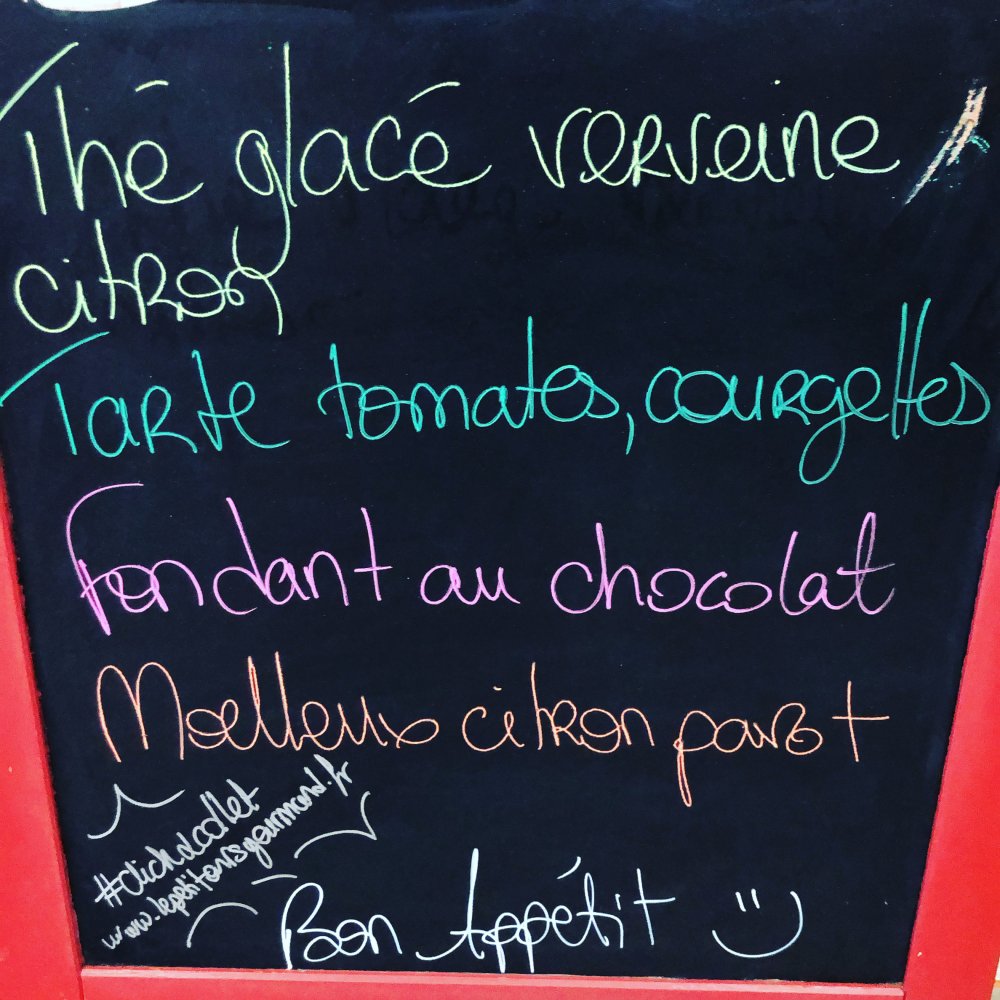 Thé glacé verveine
citron
Tarte tomates, courgettes
Fondant au chocolat
Moelleux citron pavot
#click&collet
www.lepetitoursgourmand.fr
Bon Appétit